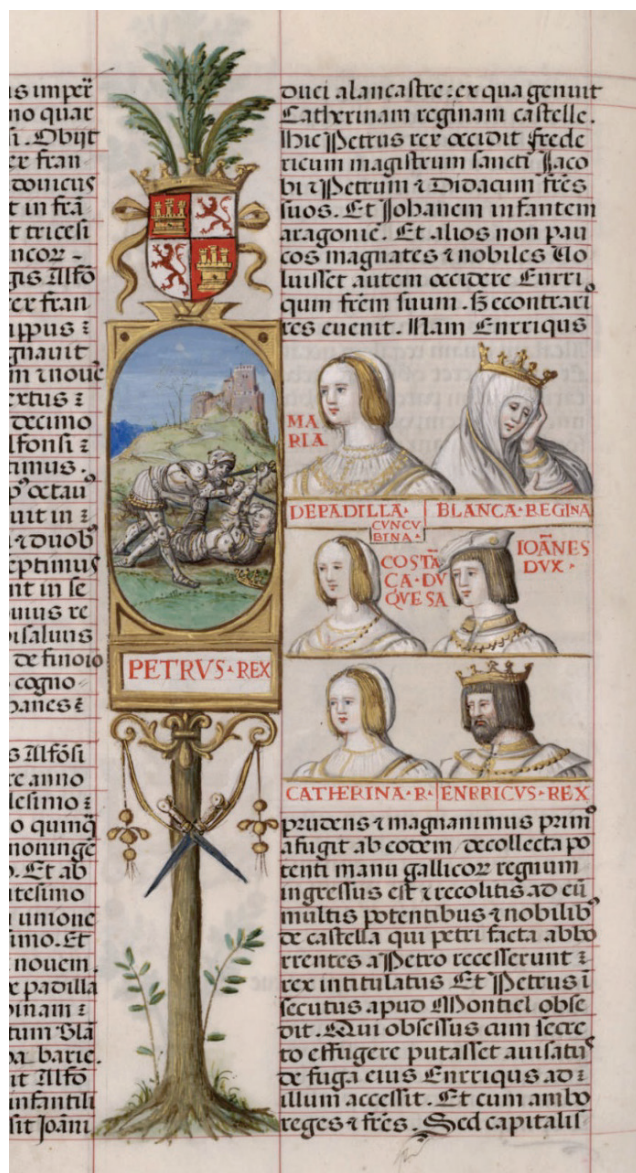 s imper̃
no quar
i. Obijt
er fran
dominicus
t in frã
t tricesi
ncor
gis Alfõ
er fran
ippus ⁊
gnauit
m ⁊ noue
ertus ⁊
decimo
lfonsi ⁊
timus.
octau
uit in ⁊
⁊ duob
septimus
nt in se
uius re
de finoio
cogno
hanes ⁊
s Alfõsi
re anno
lesimo ⁊
o quinq̃
noninge
. Et ab
tesimo
unione
imo. Et
nouem.
e padilla
binam ⁊
tum Blã
ba barie.
it Alfõ
infantili
sit Joãni
PETRVS REX
duci alancastre: ex qua genuit
Catherinam reginam castelle.
Hic Petrus rex occidit frede
ricum magistrum sancti Jaco
bi ⁊ Petrum ⁊ Didacum frẽs
suos. Et Johanem infantem
aragonie. Et alios non pau
cos magnates ⁊ nobiles Uo
luisset autem occidere Enrri
qum frẽm suum. Ꜩ econtrari
res euenit. Nam Enrriqus
MA
RIA
DEPADILLA
CVNCV
BINA
BLANCA REGINA
COSTÃ
CA DV
QVESA
IOÃNES
DVX
CATHERINA R
ENRRICVS REX
prudens ⁊ magnanimus prim⁹
afugit ab eodem decollecta po
tenti manu gallicor regnum
ingressus est ⁊ recolitis ad eũ
multis potentibus ⁊ nobilib⁹
de castella qui petri facta abho
rrentes a Petro recesserunt ⁊
rex intitulatus Et Petrus ĩ
secutus apud Montiel obse
dit. Qui obsessus cum secre
to effugere putasset auisatus
de fuga eius Enrriqus ad ⁊
illum accessit. Et cum ambo
reges ⁊ frẽs. Sed capitalis